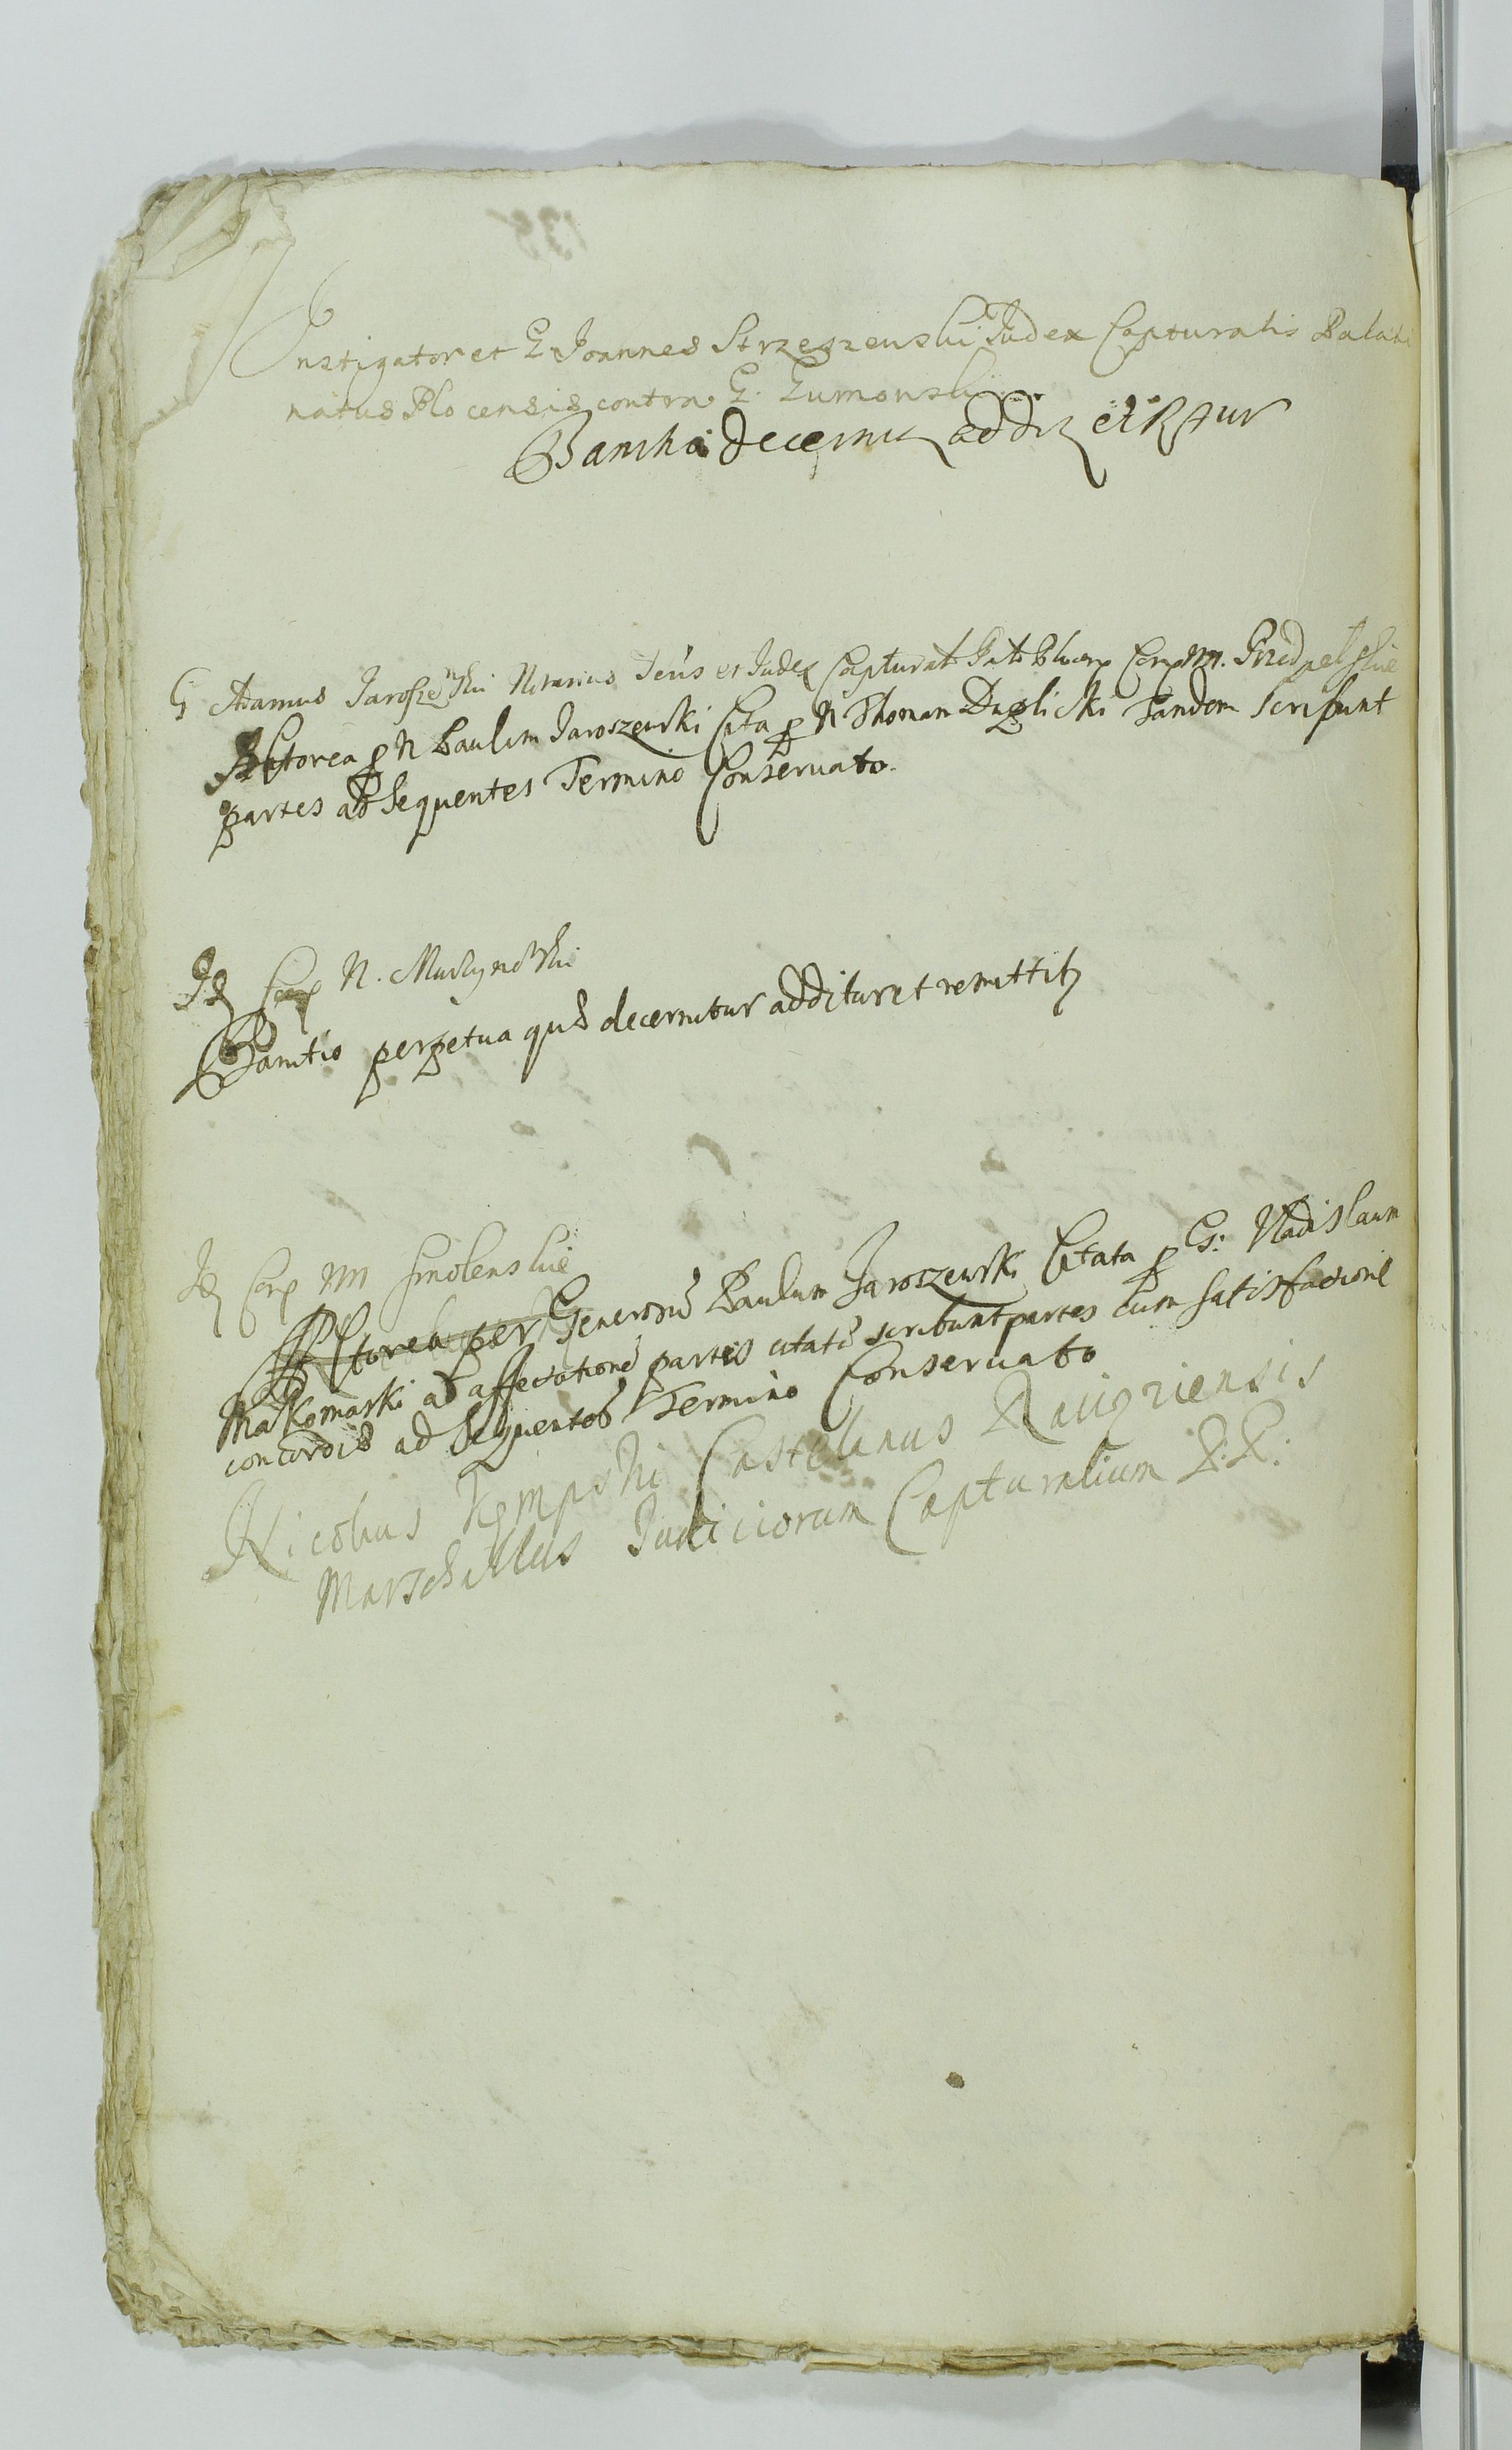 Instigator et G Joannes Strzeszenski Judex Capturalis Palati
natus Plocensis contra G. Gumonski
Banitio decernitz additz et Rttur
G Adamus Jaroszewski Notarius Terrs et Judex Captural Pals Plocen
Actorea p N Paulum Jaroszewski Cita p N Thomam Duglicki Tandem Scribunt
partes ad Sequentes Termino Conseruato.
Id N.
Banitio perpetua qud decernitur additur et remittitz
Id NN Smolenskie
Actorea per Generosū Paulum Jaroszewski Citata p Gs: Vladislaum
Makomaski ad affectationē partis citatē scribunt partes cum satisfactione
concordiē ad Sequentes Termino Conseruato
Nicolaus Kempski Castellanus Raugziensis
Marschallus Judiciorum Capturalium P.P.